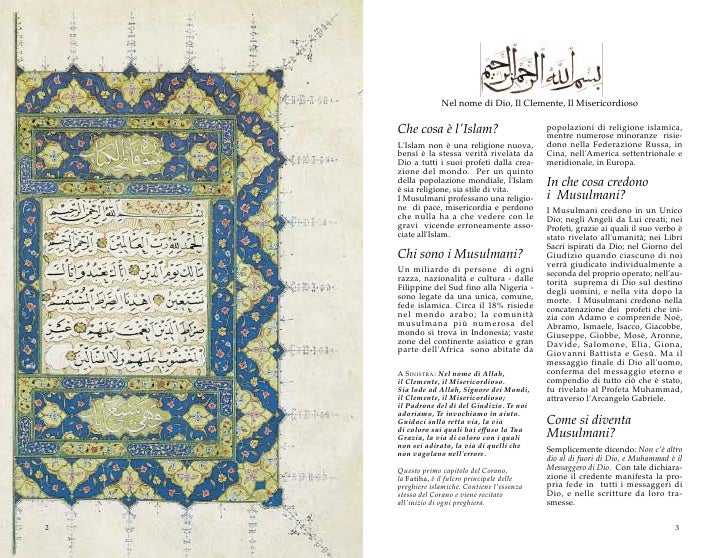 بِسْمِ اللَّهِ الرَّحْمَٰنِ الرَّحِيمِ
الْحَمْدُ لِلَّهِ رَبِّ الْعَالَمِينَ الرَّحْمَٰنِ الرَّحِيمِ
مَالِكِ يَوْمِ الدِّينِ إِيَّاكَ نَعْبُدُ وَإِيَّاكَ
نَسْتَعِينُ اهْدِنَا الصِّرَاطَ الْمُسْتَقِيمَ
صِرَاطَ الَّذِينَ أَنْعَمْتَ عَلَيْهِمْ غَيْرِ
الْمَغْضُوبِ عَلَيْهِمْ وَلَا الضَّالِّينَ
2
بسم الله الرحمن الرحيم
Nel nome di Dio, Il Clemente, Il Misericordioso
Che cosa è l'Islam?
L'Islam non è una religione nuova,
bensì è la stessa verità rivelata da
Dio a tutti i suoi profeti dalla crea-
zione del mondo. Per un quinto
della popolazione mondiale, l'Islam
è sia religione, sia stile di vita.
I Musulmani professano una religio-
ne di pace, misericordia e perdono
che nulla ha a che vedere con le
gravi vicende erroneamente asso-
ciate all'Islam.
Chi sono i Musulmani?
Un miliardo di persone di ogni
razza, nazionalità e cultura - dalle
Filippine del Sud fino alla Nigeria -
sono legate da una unica, comune,
fede islamica. Circa il 18% risiede
nel mondo arabo; la comunità
musulmana più numerosa del
mondo si trova in Indonesia; vaste
zone del continente asiatico e gran
parte dell'Africa sono abitate da
A SINISTRA: Nel nome di Allah,
il Clemente, il Misericordioso.
Sia lode ad Allah, Signore dei Mondi,
il Clemente, il Misericordioso;
il Padrone del dì del Giudizio. Te noi
adoriamo, Te invochiamo in aiuto.
Guidaci sulla retta via, la via
di coloro sui quali hai effuso la Tua
Grazia, la via di coloro con i quali
non sei adirato, la via di quelli che non
vagolano nell'errore.
Questo primo capitolo del Corano,
la Fatiha, è il fulcro principale delle
preghiere islamiche. Contiene l'essenza
stessa del Corano e viene recitato
all'inizio di ogni preghiera.
popolazioni di religione islamica,
mentre numerose minoranze risie-
dono nella Federazione Russa, in
Cina, nell'America settentrionale e
meridionale, in Europa.
In che cosa credono
i Musulmani?
I Musulmani credono in un Unico
Dio; negli Angeli da Lui creati; nei
Profeti, grazie ai quali il suo verbo è
stato rivelato all'umanità; nei Libri
Sacri ispirati da Dio; nel Giorno del
Giudizio quando ciascuno di noi
verrà giudicato individualmente a
seconda del proprio operato; nell'au-
torità suprema di Dio sul destino
degli uomini, e nella vita dopo la
morte. I Musulmani credono nella
concatenazione dei profeti che ini-
zia con Adamo e comprende Noè,
Abramo, Ismaele, Isacco, Giacobbe,
Giuseppe, Giobbe, Mosè, Aronne,
Davide, Salomone, Elia, Giona,
Giovanni Battista e Gesù. Ma il
messaggio finale di Dio all'uomo,
conferma del messaggio eterno e
compendio di tutto ciò che è stato,
fu rivelato al Profeta Muhammad,
attraverso l'Arcangelo Gabriele.
Come si diventa
Musulmani?
Semplicemente dicendo: Non c'è altro
dio al di fuori di Dio, e Muhammad è il
Messaggero di Dio. Con tale dichiara-
zione il credente manifesta la pro-
pria fede in tutti i messaggeri di
Dio, e nelle scritture da loro tra-
smesse.
3